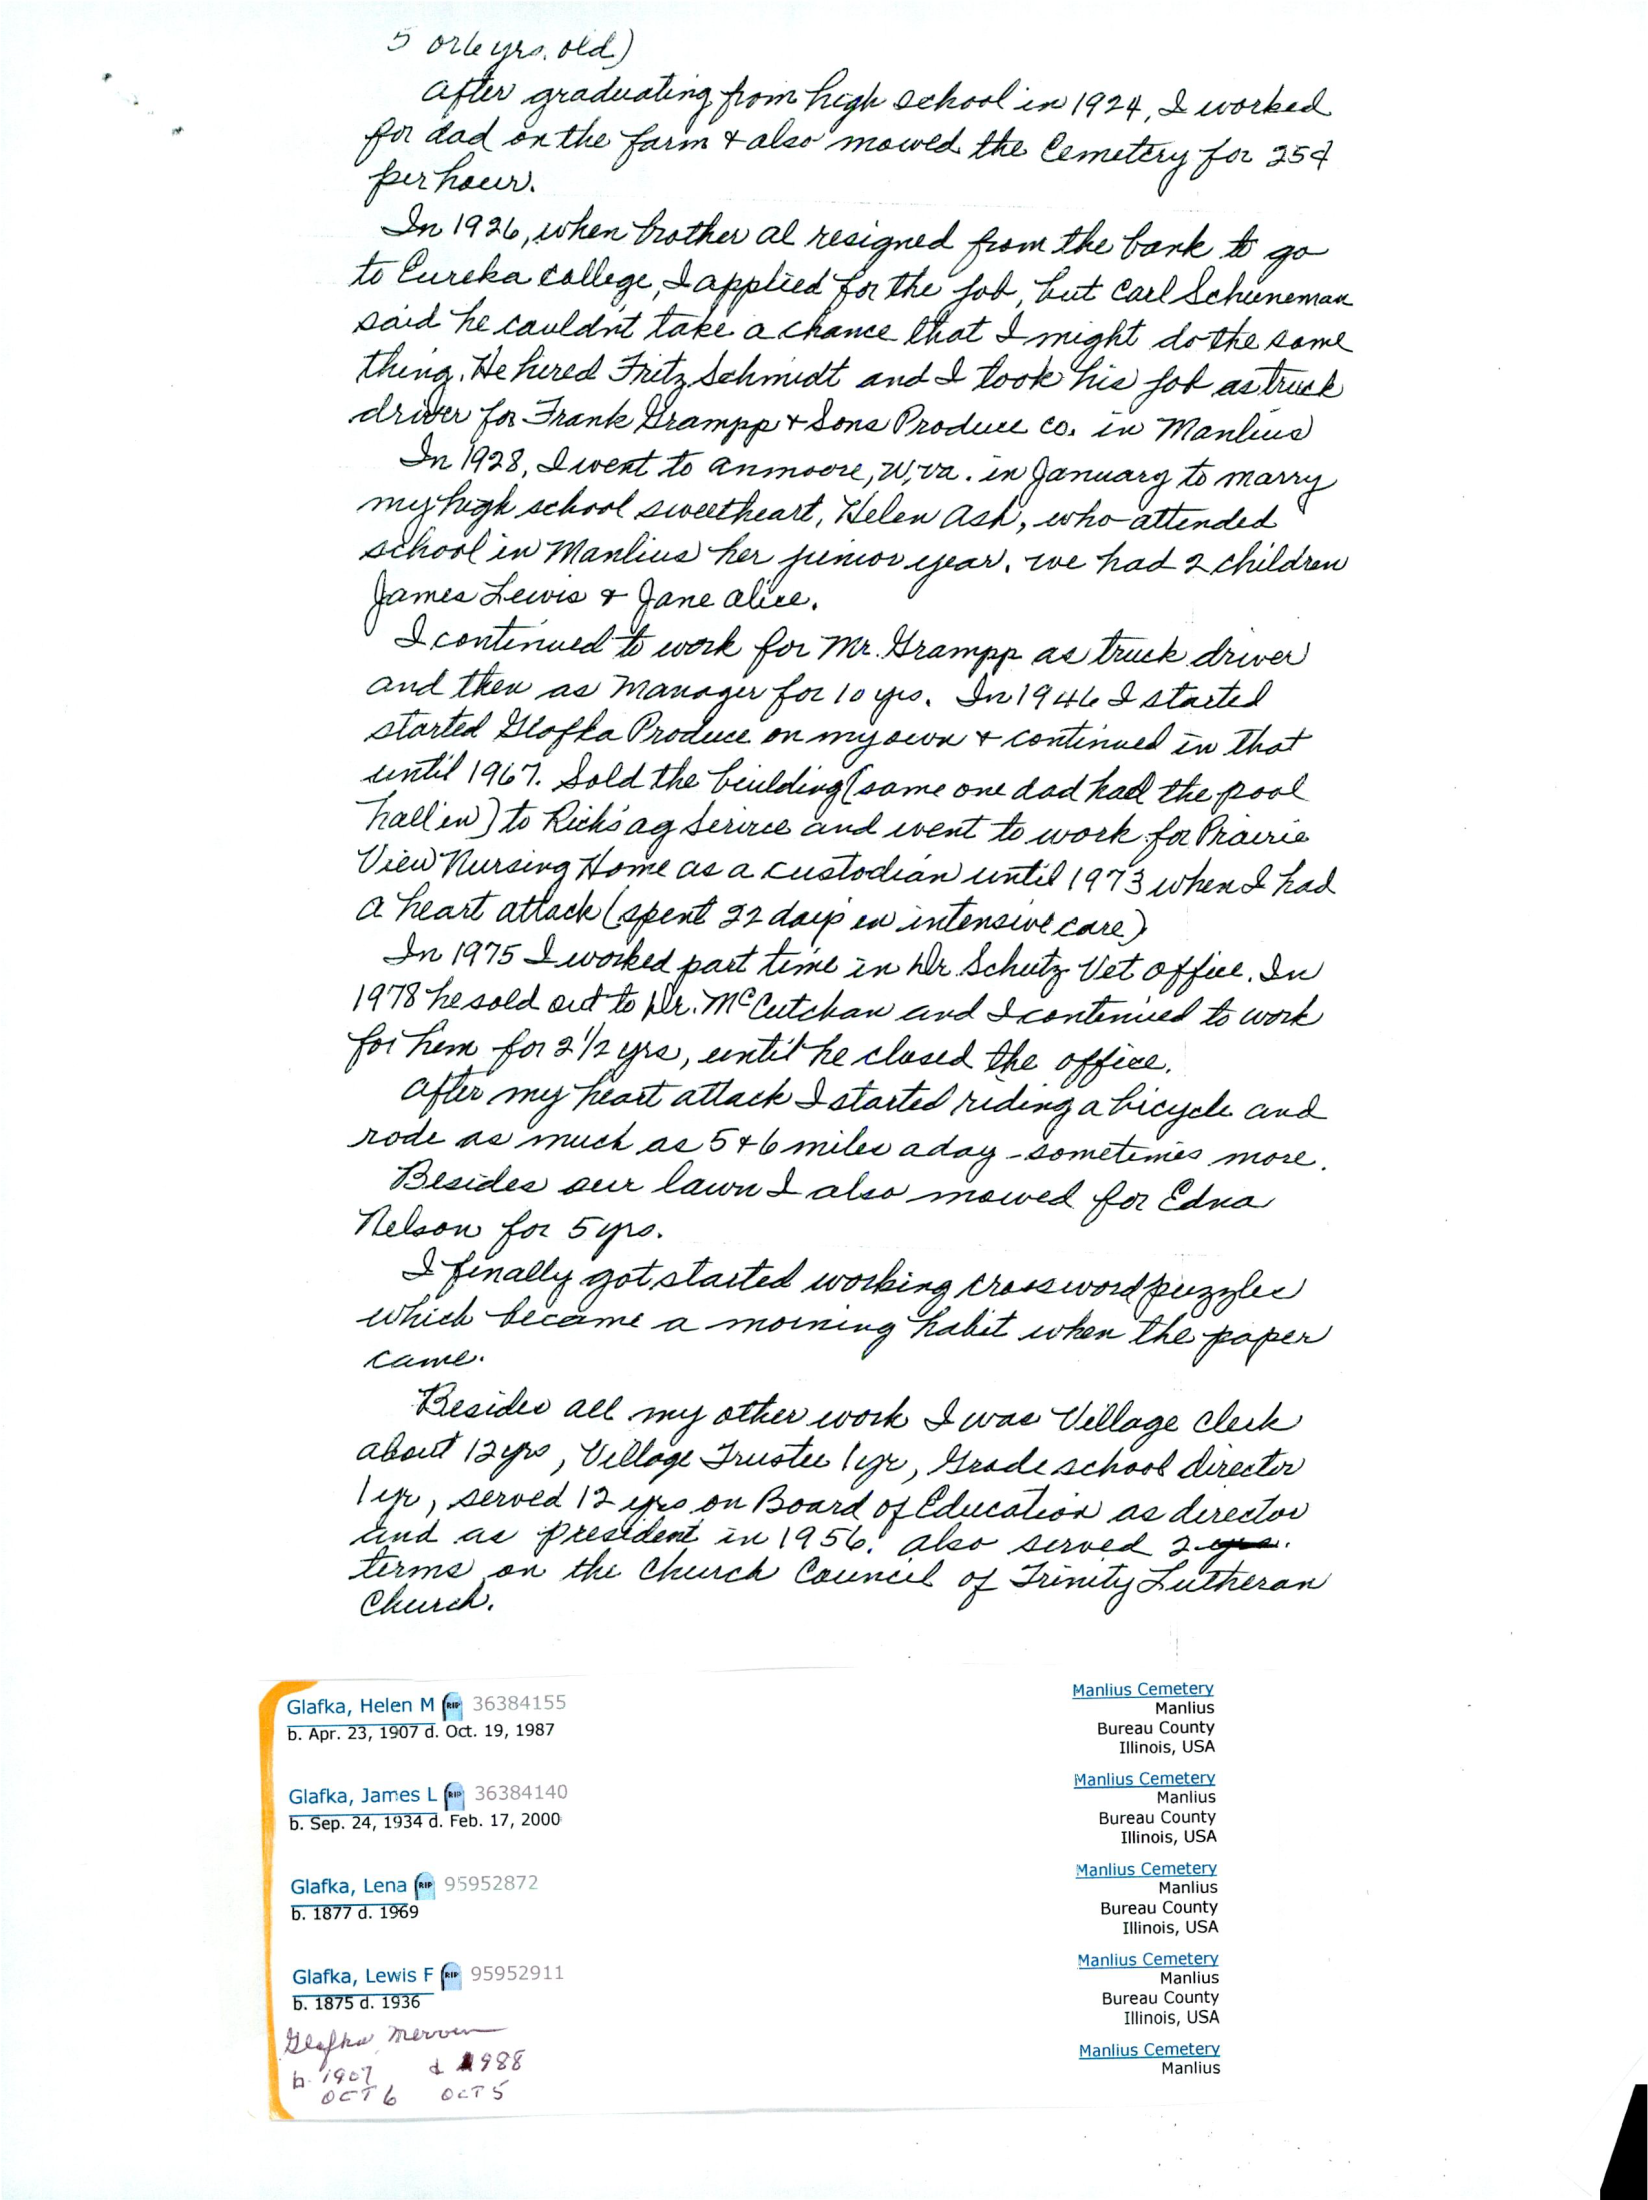 5 or 6 yrs. old)
After graduating from high school in 1924, I worked
for dad on the farm & also mowed the Cemetery for 25¢
per hour.
In 1926, when brother Al resigned from the bank to go
to Eureka College, I applied for the job, but Carl Scheuneman
said he couldn't take a chance that I might do the same
thing. He hired Fritz Schmidt and I took his job as truck
driver for Frank Grampp & Sons Produce Co. in Manlius
In 1928, I went to Anmoore, W, Va. in January to marry
my high school sweetheart, Helen Ash, who attended
school in Manlius her junior year. We had 2 children
James Lewis & Jane Alice.
I continued to work for Mr. Grampp as truck driver
and then as Manager for 10 yrs. In 1946 I started
started Glafka Produce on my own & continued in that
until 1967. Sold the building (same one dad had the pool
hall in) to Rich's Ag Service and went to work for Prairie
View Nursing Home as a custodian until 1973 when I had
a heart attack (spent 22 days in intensive care)
In 1975 I worked part time in Dr. Schutz Vet office. In
1978 he sold out to Dr. McCutchan and I continued to work
for him for 2 1/2 yrs, until he closed the office.
After my heart attack I started riding a bicycle and
rode as much as 5 & 6 miles a day - sometimes more.
Besides our lawn I also mowed for Edna
Nelson for 5 yrs.
I finally got started working crossword puzzles
which became a morning habit when the paper
came.
Besides all my other work I was Village clerk
about 12 yrs, Village Trustee 1 yr, Grade school director
1 yr, served 12 yrs on Board of Education as director
and as president in 1956. Also served 2 yrs.
terms on the Church Council of Trinity Lutheran
Church.
Glafka, Helen M RIP 36384155 Manlius Cemetery
Manlius
b. Apr. 23, 1907 d. Oct. 19, 1987 Bureau County
Illinois, USA
Glafka, James L RIP 36384140 Manlius Cemetery
Manlius
b. Sep. 24, 1934 d. Feb. 17, 2000 Bureau County
Illinois, USA
Glafka, Lena RIP 95952872 Manlius Cemetery
Manlius
b. 1877 d. 1969 Bureau County
Illinois, USA
Glafka, Lewis F RIP 95952911 Manlius Cemetery
Manlius
b. 1875 d. 1936 Bureau County
Illinois, USA
Glafka, Merven Manlius Cemetery
b. 1907 d 1988 Manlius
OCT 6 OCT 5